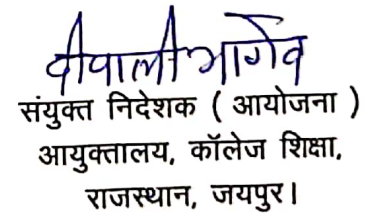 दीपाली भार्गव
संयुक्त निदेशक ( आयोजना )
आयुक्तालय, कॉलेज शिक्षा,
राजस्थान, जयपुर।